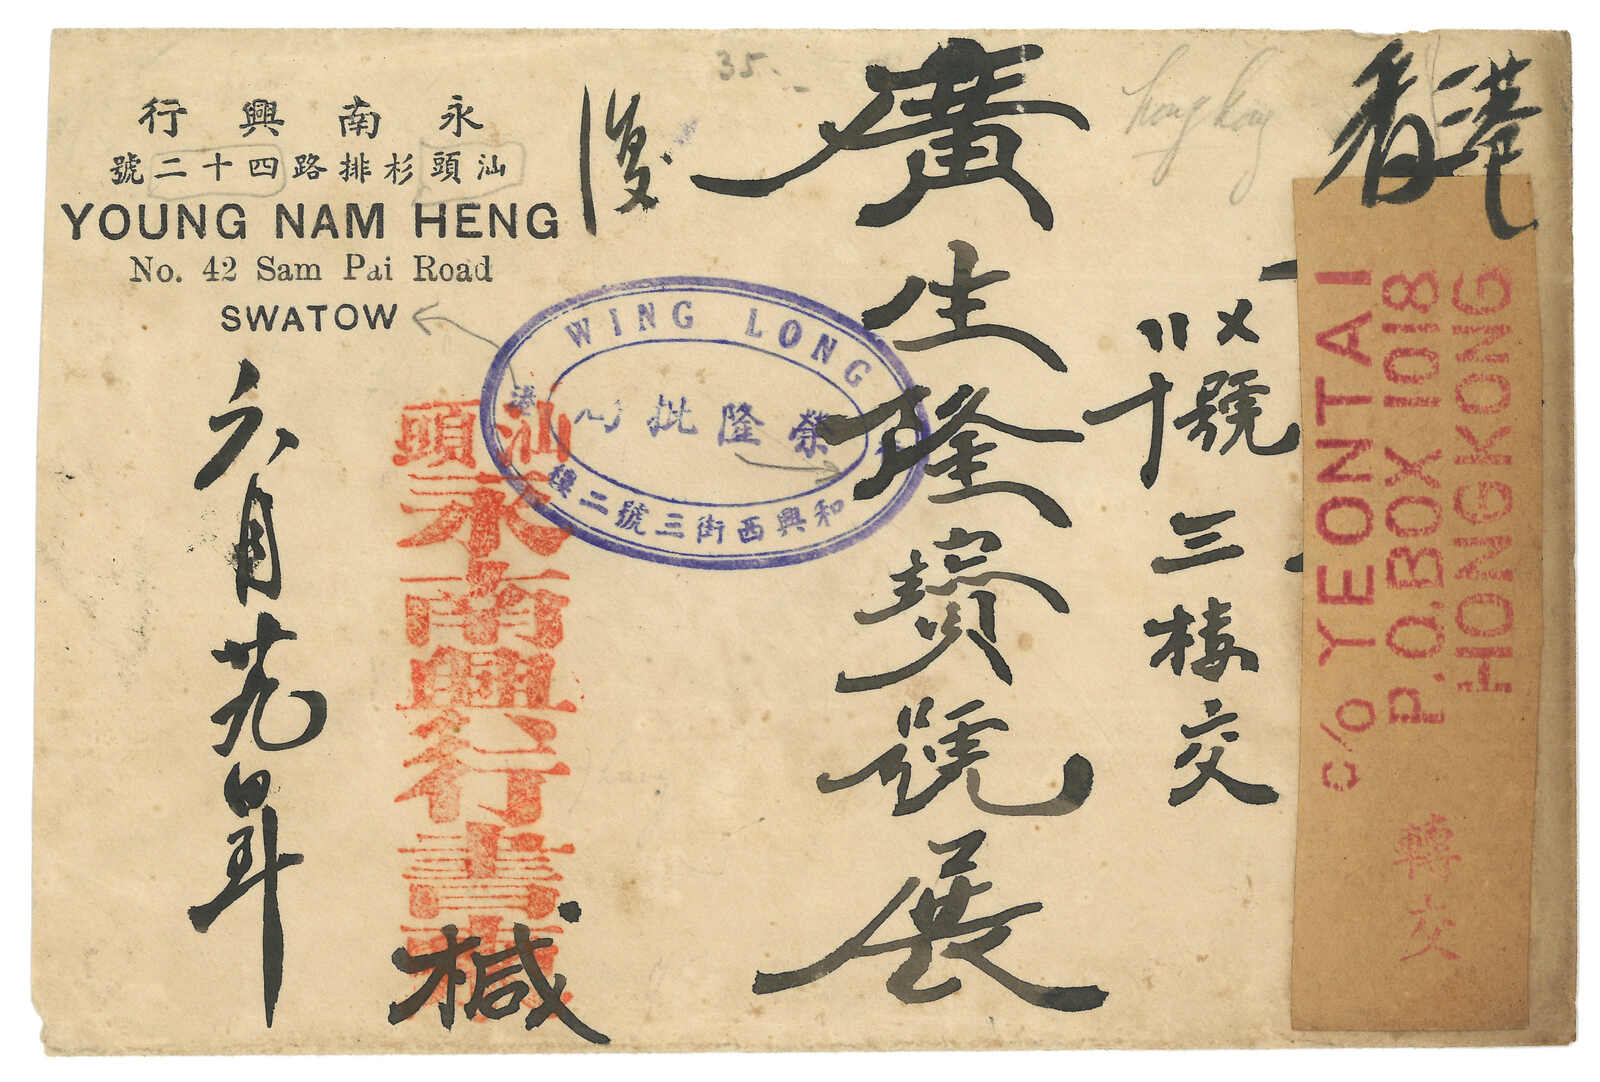 永南興行
汕頭杉排路四十二號
YOUNG NAM HENG
No. 42 Sam Pai Road
SWATOW
35.
hong kong
香港
C/O YEONTAI
P.O.BOX 1018
HONGKONG
轉交
號三楼交
廣生隆寶號展
復
WING LONG
榮隆批局
香港
和興西街三號二樓
汕頭
永南興行書柬
椷
六月廿九日年